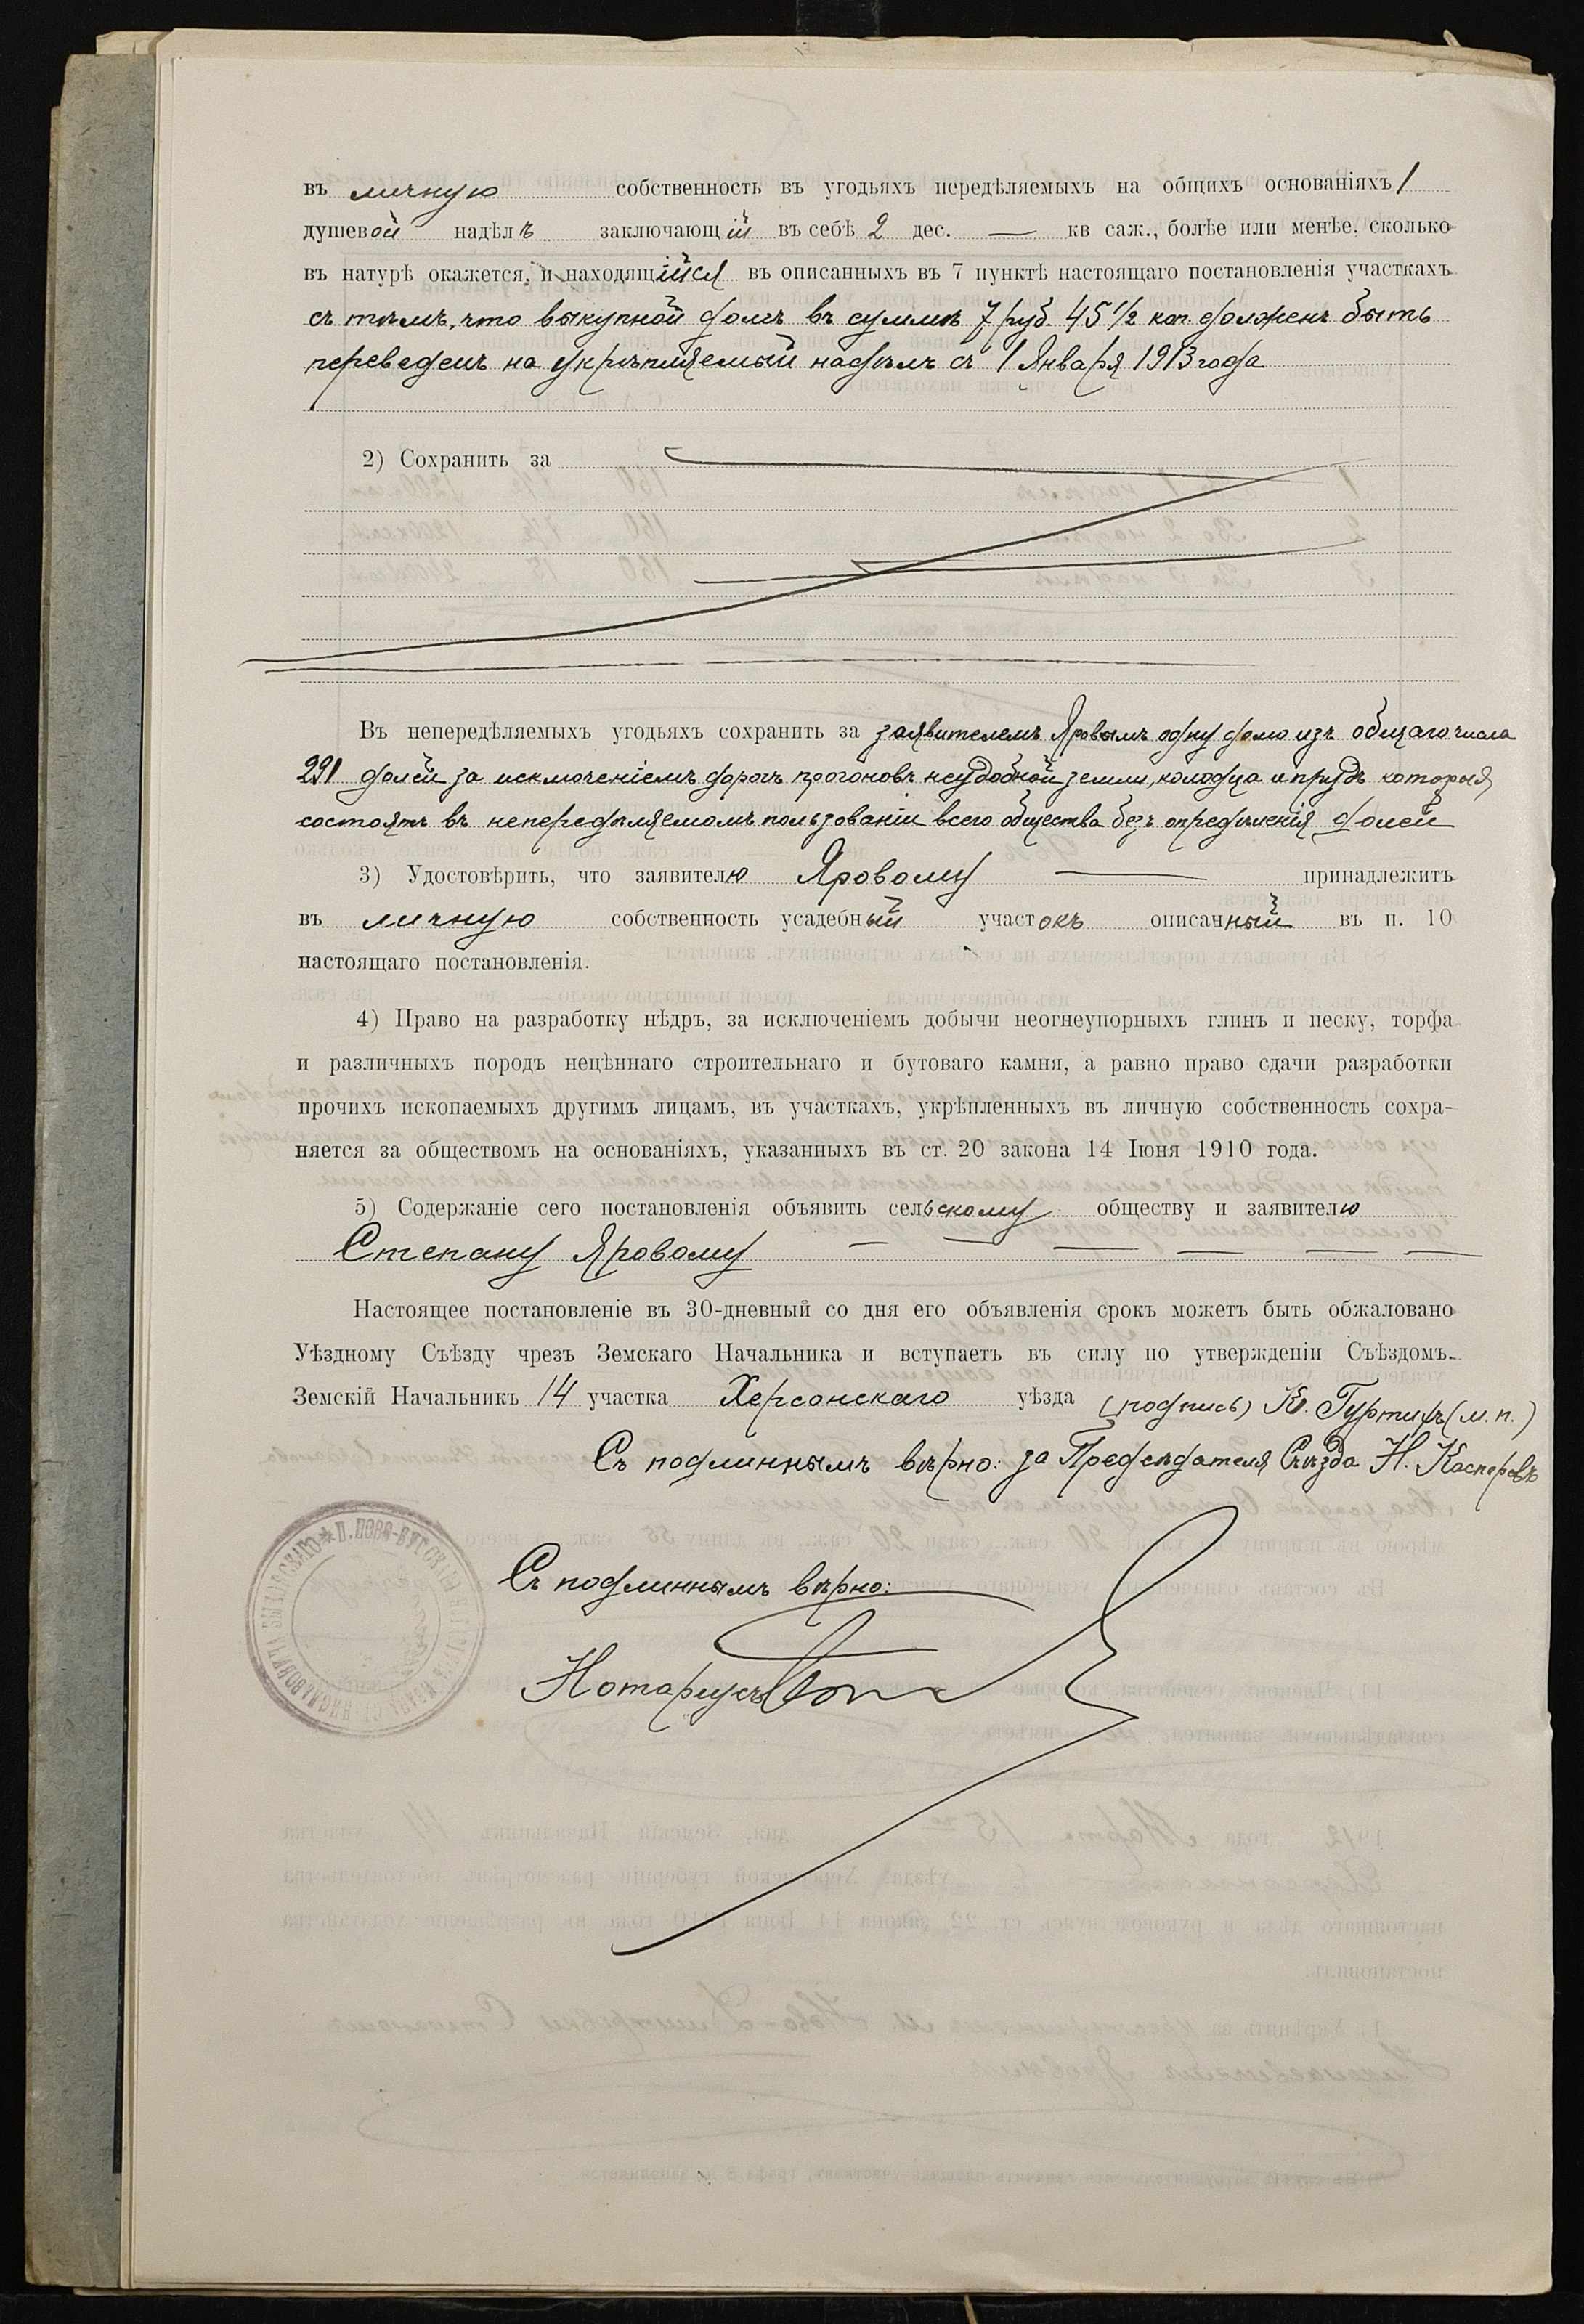 въ личную собственность въ угодьяхъ передѣляемыхъ на общихъ основаніяхъ 1
душевой надѣлъ заключающій въ себѣ 2 дес. — кв саж., болѣе или менѣе, сколько
въ натурѣ окажется, и находящійся въ описанныхъ въ 7 пунктѣ настоящаго постановленія участкахъ
съ тѣмъ, что выкупной долгъ въ суммѣ 7 руб. 45 1/2 коп. долженъ быть
переведенъ на укрѣпляемый надѣлъ съ 1 Января 1913 года
2) Сохранить за
Въ непередѣляемыхъ угодьяхъ сохранить за заявителемъ Яровымъ одну долю изъ общаго числа
291 долей за исключеніемъ дорогъ прогоновъ неудобной земли, колодца и прудъ которыя
состоятъ въ непередѣляемомъ пользованіи всего общества безъ опредѣленія долей
3) Удостовѣрить, что заявителю Яровому — принадлежитъ
въ личную собственность усадебный участокъ описанный въ п. 10
настоящаго постановленія.
4) Право на разработку нѣдръ, за исключеніемъ добычи неогнеупорныхъ глинъ и песку, торфа
и различныхъ породъ нецѣннаго строительнаго и бутоваго камня, а равно право сдачи разработки
прочихъ ископаемыхъ другимъ лицамъ, въ участкахъ, укрѣпленныхъ въ личную собственность сохра-
няется за обществомъ на основаніяхъ, указанныхъ въ ст. 20 закона 14 Іюня 1910 года.
5) Содержаніе сего постановленія объявить сельскому обществу и заявителю
Степану Яровому — — — — — —
Настоящее постановленіе въ 30-дневный со дня его объявленія срокъ можетъ быть обжаловано
Уѣздному Съѣзду чрезъ Земскаго Начальника и вступаетъ въ силу по утвержденіи Съѣздомъ.
Земскій Начальникъ 14 участка Херсонскаго уѣзда (подпись) (м. п.)
Съ подлиннымъ вѣрно: за Предсѣдателя Съѣзда Н.
Съ подлиннымъ вѣрно:
Нотаріусъ